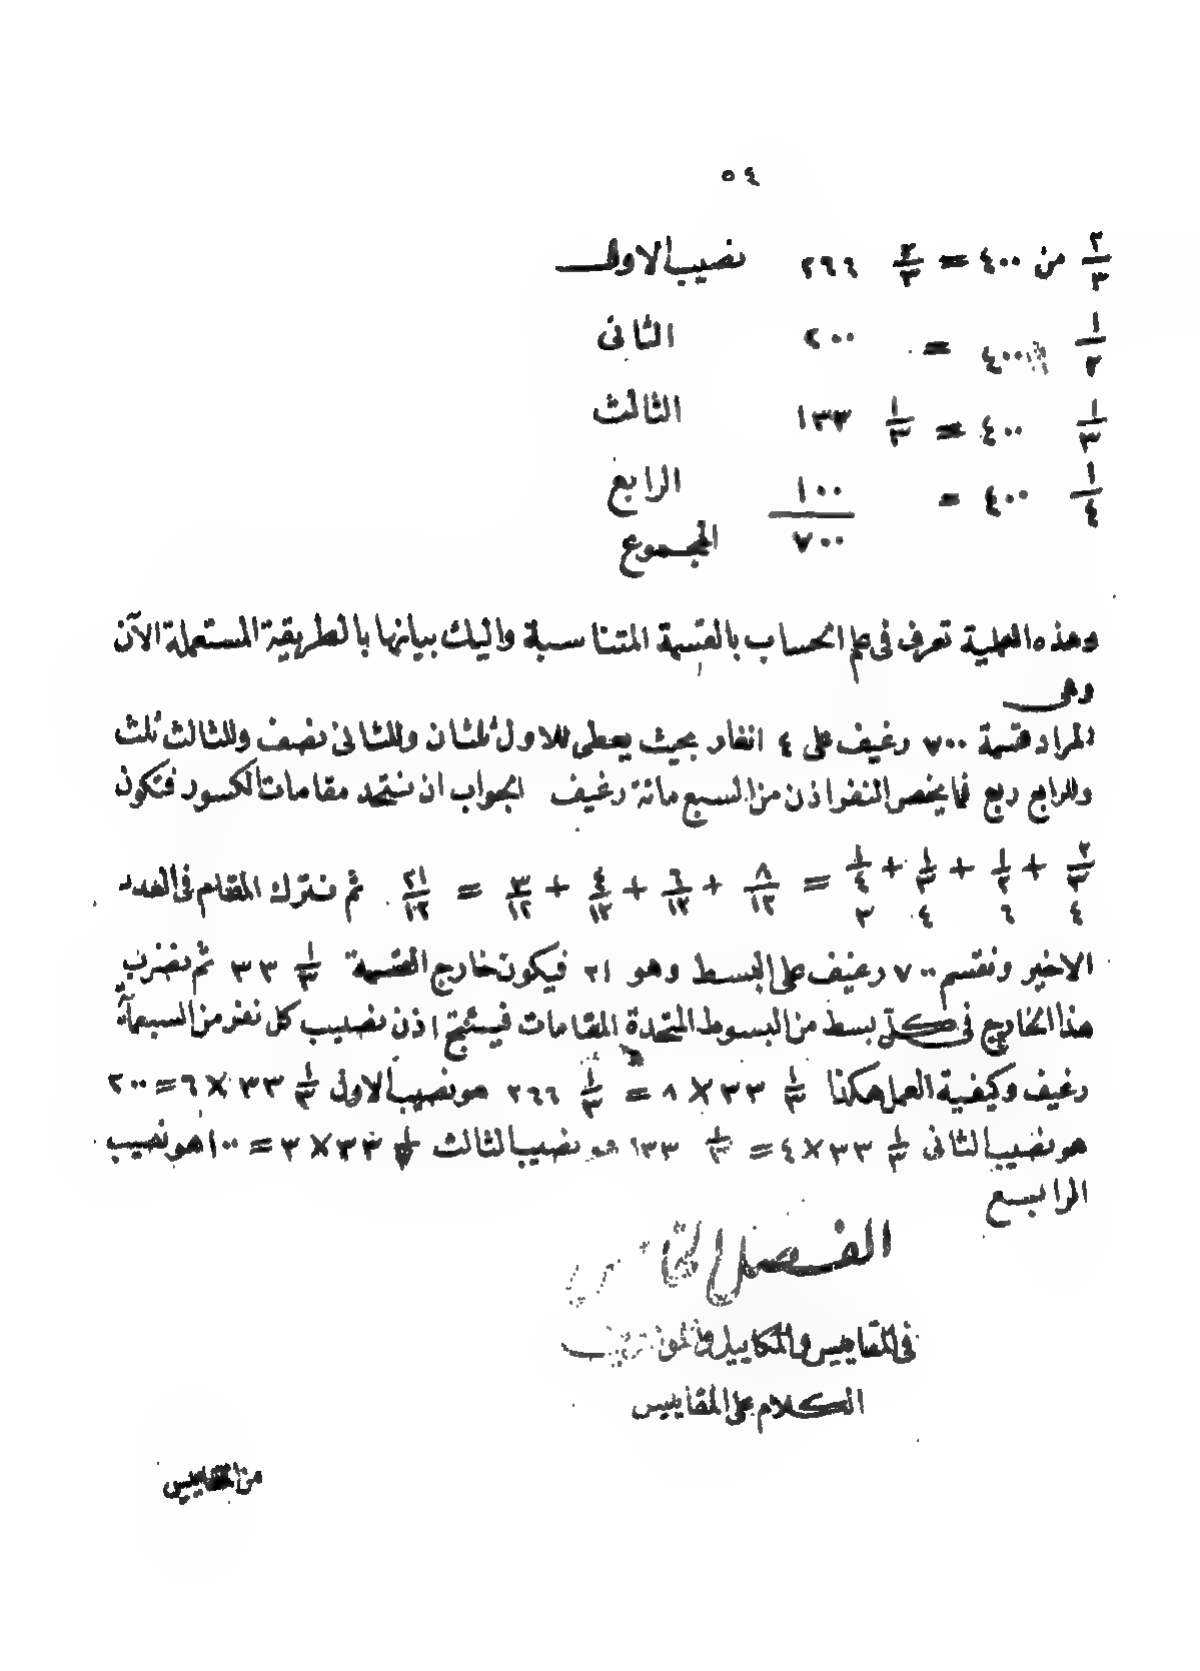 ٥٤
٢/٣ من ٤٠٠ = ٢/٣ ٢٦٦ نصيب الاول
١/٢ ٤٠٠ = ٢٠٠ الثانى
١/٣ ٤٠٠ = ١/٣ ١٣٣ الثالث
١/٤ ٤٠٠ = ١٠٠ الرابع
٧٠٠ المجموع
وهذه العملية تعرف فى علم الحساب بالقسمة المتناسبة واليك بيانها بالطريقة المستعملة الآن
وهى
المراد قسمة ٧٠٠ رغيف على ٤ انفار بحيث يعطى للاول ثلثان وللثانى نصف وللثالث ثلث
وللرابع ربع فما يخص النفر اذن من السبع مائة رغيف الجواب ان نتحد مقامات الكسور فتكون
٢/٣ + ١/٢ + ١/٣ + ١/٤ = ٨/١٢ + ٦/١٢ + ٤/١٢ + ٣/١٢ = ٢١/١٢ ثم نترك المقام فى العدد
٤ ٦ ٤ ٣
الاخير ونقسم ٧٠٠ رغيف على البسط وهو ٢١ فيكون خارج القسمة ١/٣ ٣٣ ثم نضرب
هذا الخارج فى كل بسط من البسوط المتحدة المقامات فينتج اذن نصيب كل نفر من السبعمآئة
رغيف وكيفية العمل هكذا ١/٣ ٣٣ × ٨ = ١/٣ ٢٦٦ هو نصيب الاول ١/٣ ٣٣ × ٦ = ٢٠٠
هو نصيب الثانى ١/٣ ٣٣ × ٤ = ١/٣ ١٣٣ هو نصيب الثالث ١/٣ ٣٣ × ٣ = ١٠٠ هو نصيب
الرابع
الفصل
فى المقاييس والمكاييل
الكلام على المقاييس
من المقاييس